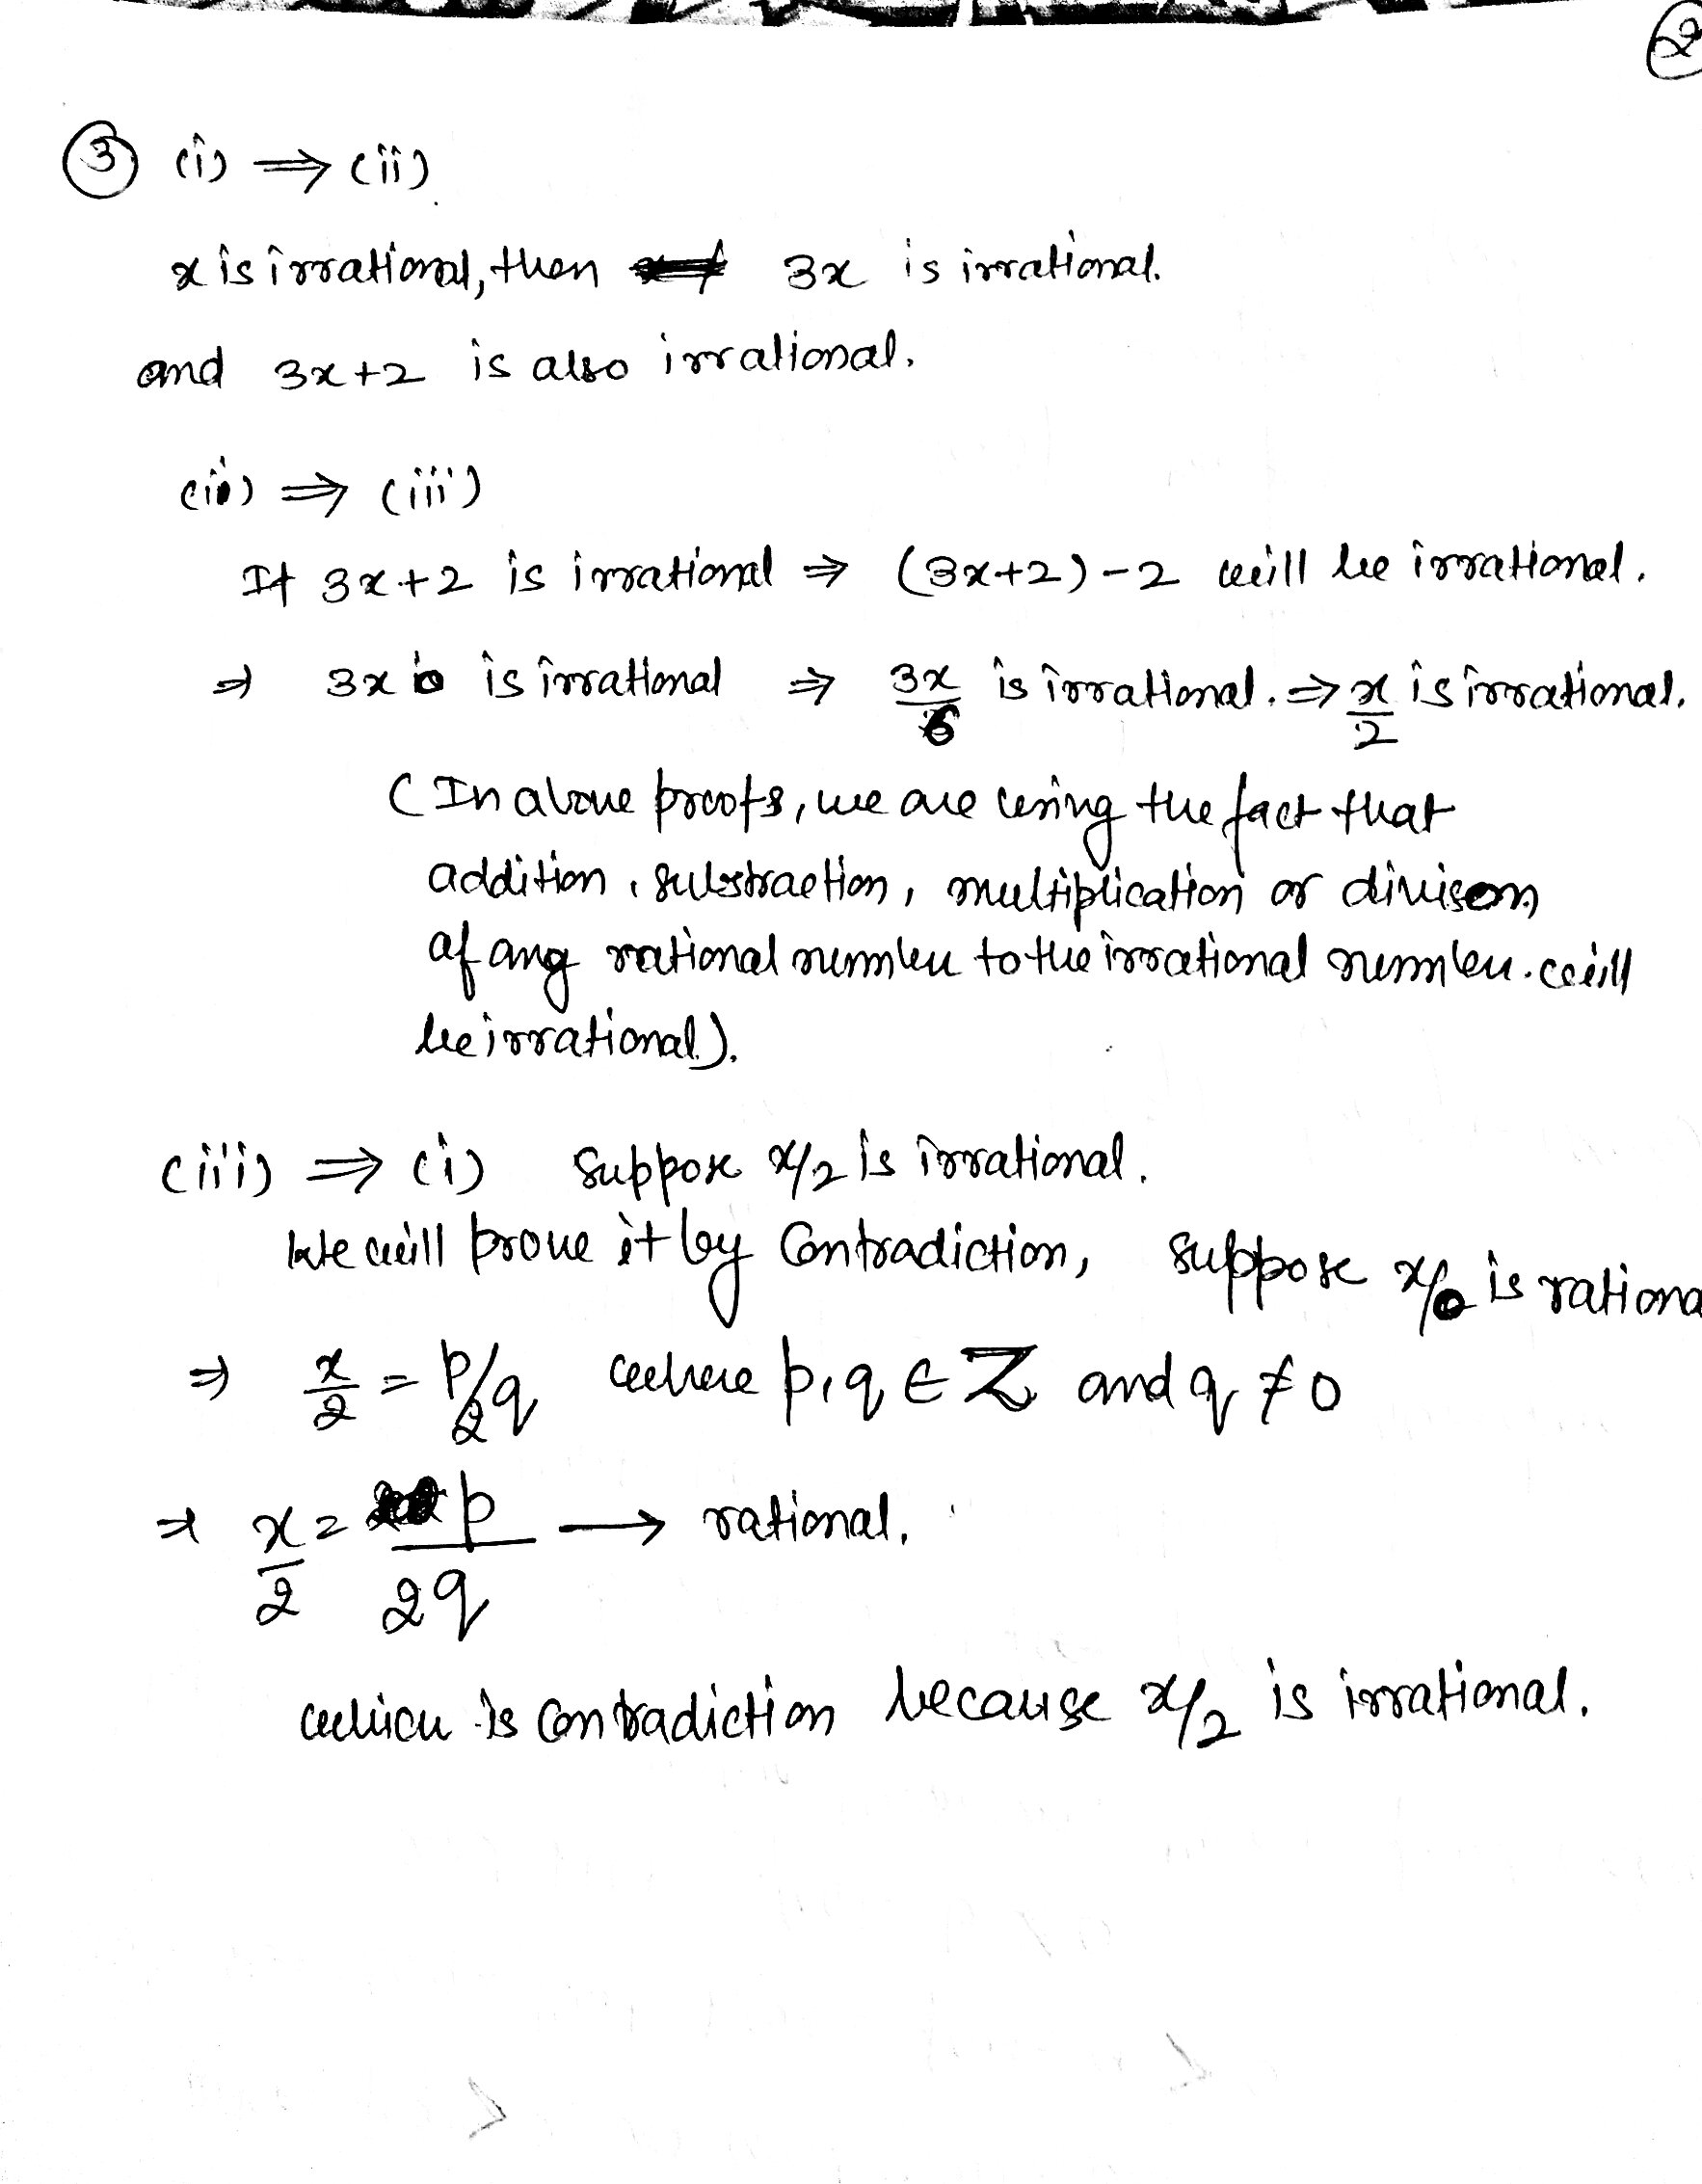 2
3 (i) ⇒ (ii)
x is irrational, then 3x is irrational.
and 3x+2 is also irrational.
(ii) ⇒ (iii)
If 3x+2 is irrational ⇒ (3x+2)-2 will be irrational.
⇒ 3x is irrational ⇒ 3x/6 is irrational. ⇒ x/2 is irrational.
(In above proofs, we are using the fact that
addition, substraction, multiplication or divison
of any rational number to the irrational number. will
be irrational).
(iii) ⇒ (i) Suppose x/2 is irrational.
We will prove it by Contradiction, Suppose x is rationa
⇒ x/2 = p/2q where p, q ∈ Z and q ≠ 0
⇒ x/2 = p/2q → rational.
which is Contradiction because x/2 is irrational.